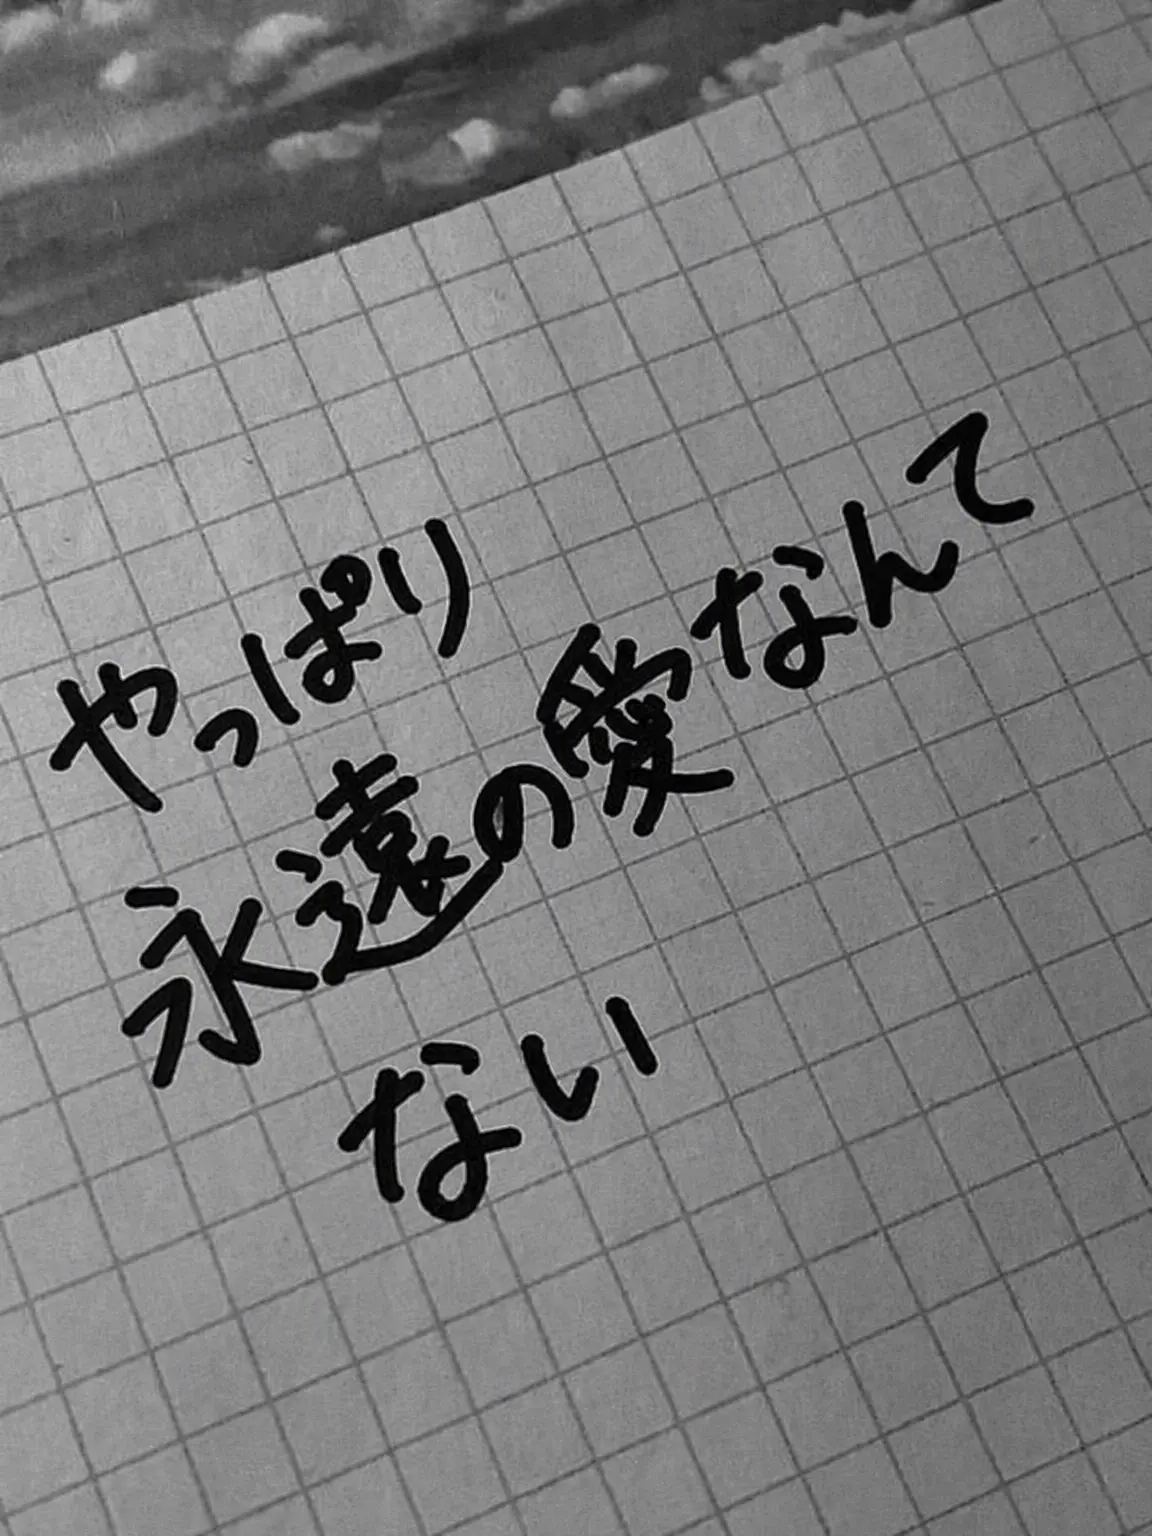 やっぱり
永遠の愛なんて
ない